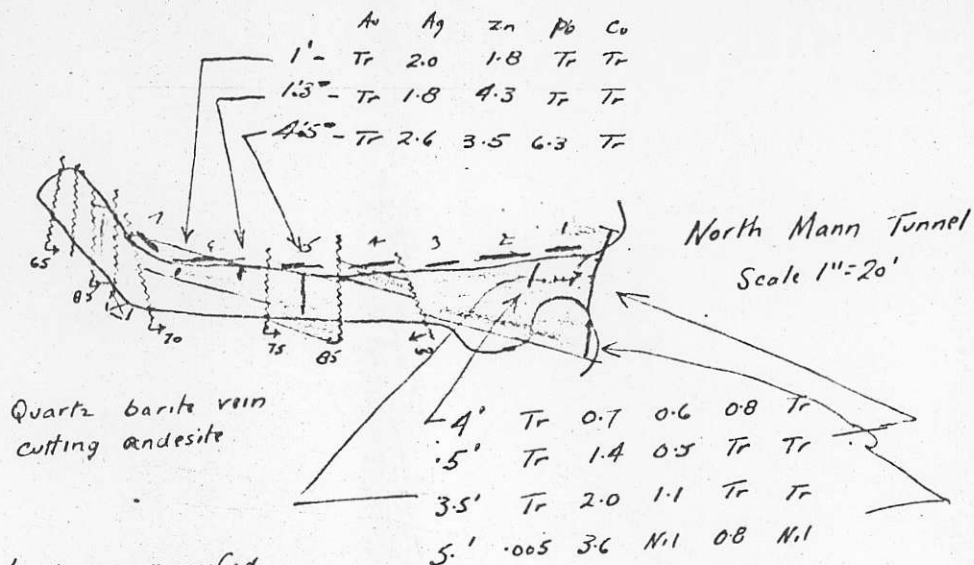 Au Ag Zn Pb Cu
1' - Tr 2.0 1.8 Tr Tr
1'.3" - Tr 1.8 4.3 Tr Tr
4'.5" - Tr 2.6 3.5 6.3 Tr
7 6 5 4 3 2 1
North Mann Tunnel
Scale 1"=20'
65
85
70
75
85
60
Quartz barite vein
cutting andesite
4' Tr 0.7 0.6 0.8 Tr
.5' Tr 1.4 0.5 Tr Tr
3.5' Tr 2.0 1.1 Tr Tr
5.' .005 3.6 N.1 0.8 N.1